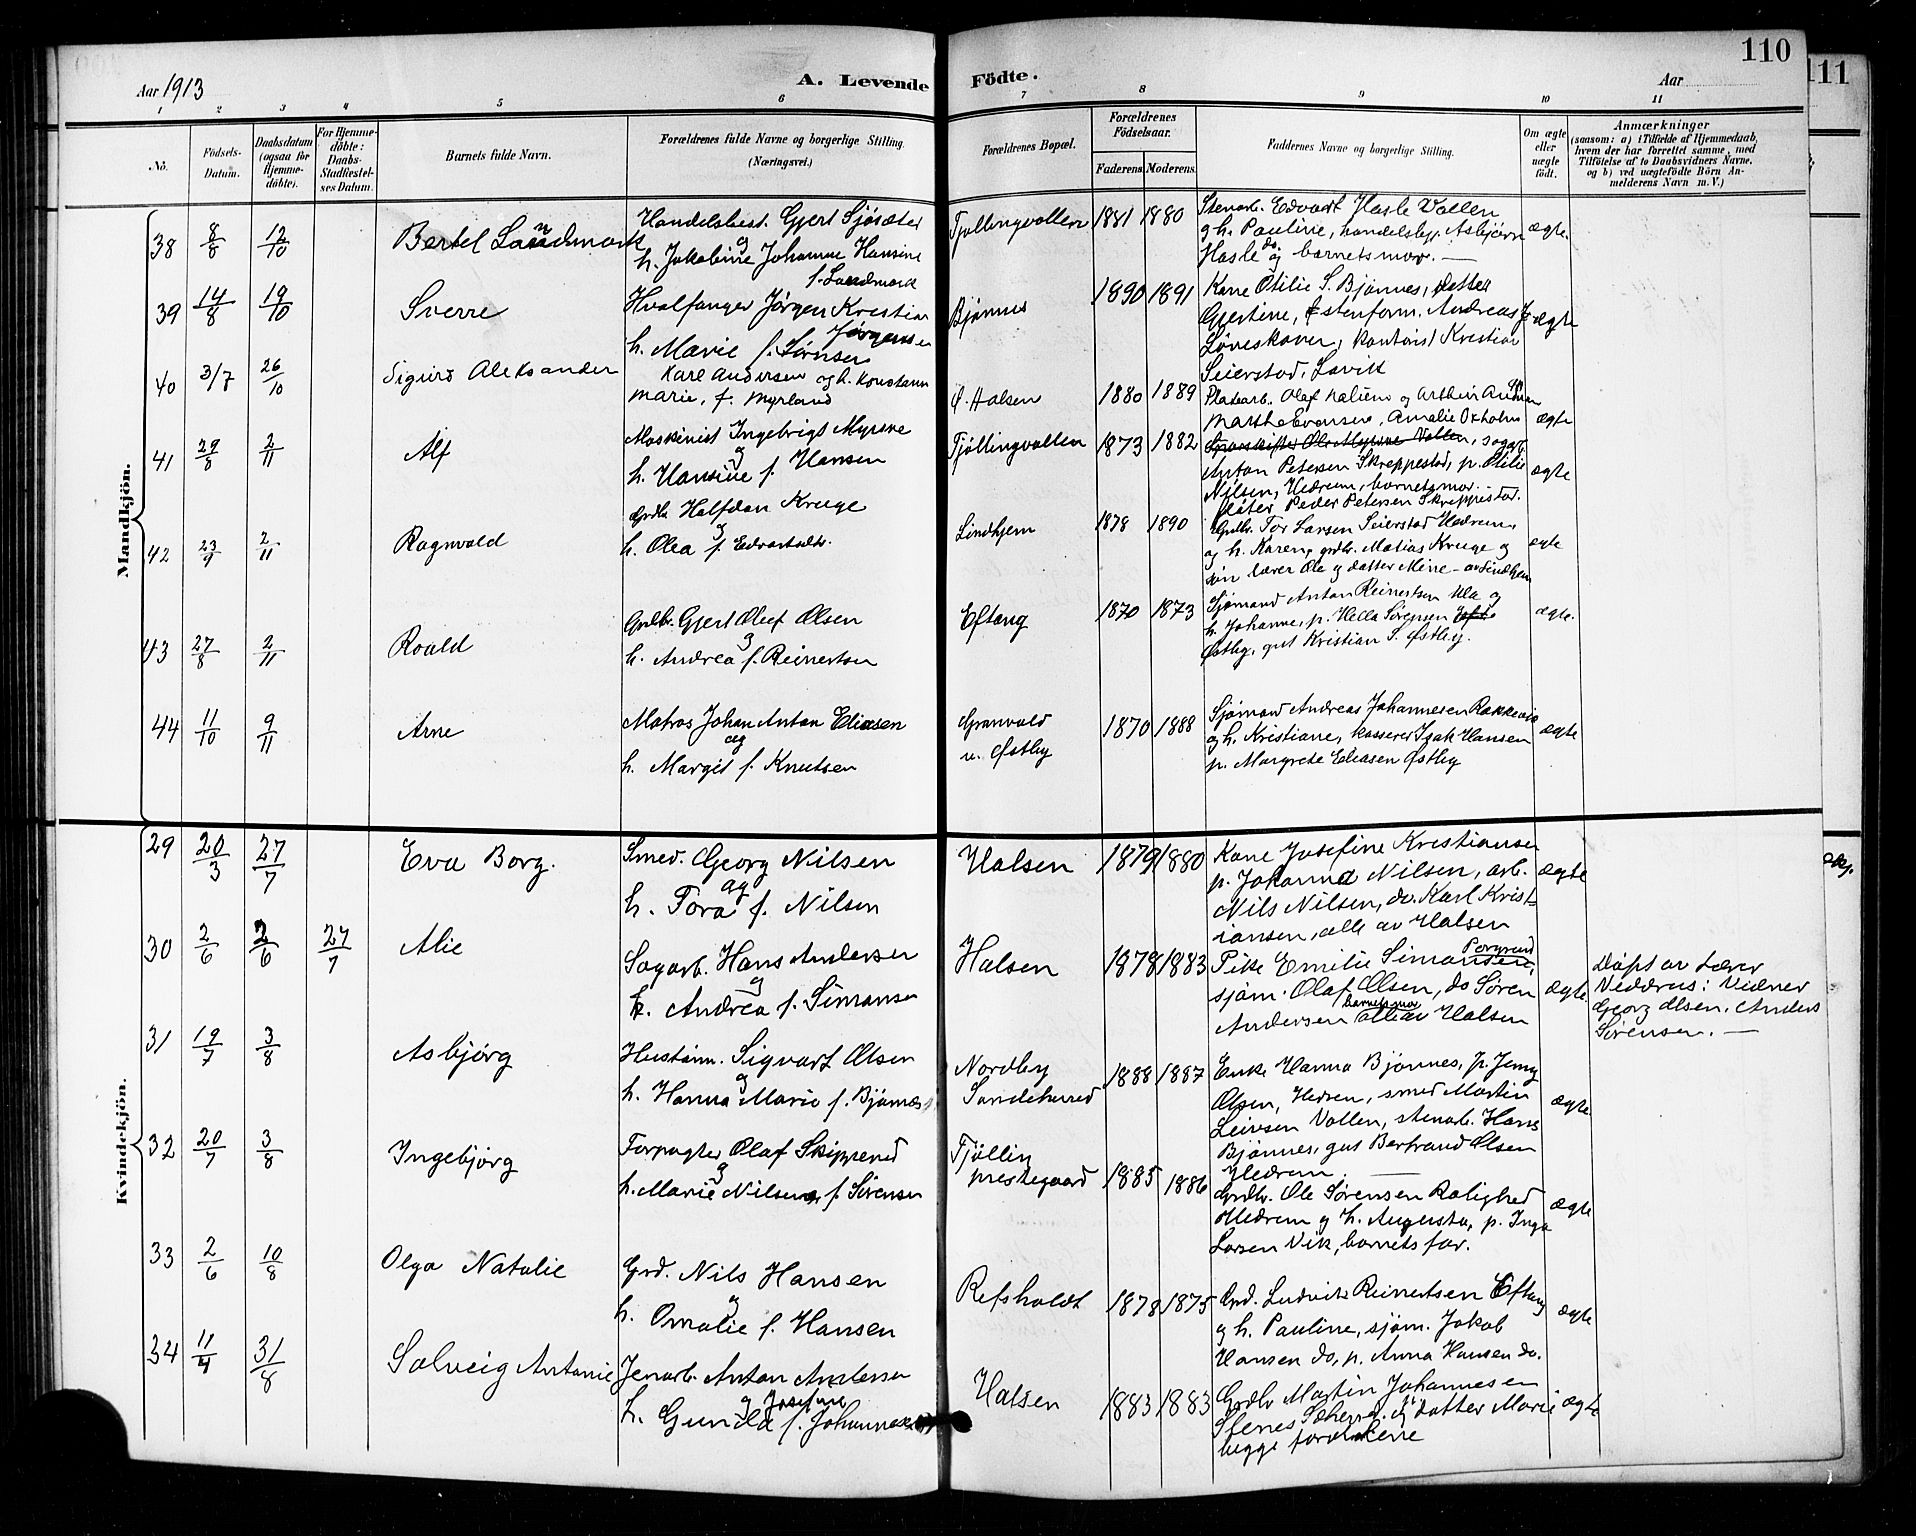 110
111
Aar 1913
A. Levende Födte.
Aar
1 2 3 4 5 6 7 8 9 10 11
No.
Födsels-Datum.
Daabsdatum (ogsaa for Hjemme-döbte).
For Hjemme-döbte: Daabs-Stadfæstel-ses Datum.
Barnets fulde Navn.
Forældrenes fulde Navne og borgerlige Stilling. (Næringsvei.)
Forældrenes Bopæl.
Forældrenes Födselsaar.
Faderens. Moderens.
Faddernes Navne og borgerlige Stilling.
Om ægte eller uægte födt.
Anmærkninger
(saasom: a) i Tilfælde af Hjemmedaab,
hvem der har forrettet samme, med
Tilföielse af to Daabsvidners Navne,
og b) ved uægtefödte Börn An-
melderens Navn m. V.)
Mandkjön.
38 8/8 12/10 Bertel Landmark
Handelsbest. Gjert Sjösæter
og
h. Jakobine Johanne Hansine
f. Landmark
Tjøllingvollen 1881 1880
Stenarb. Edvart Hasle Vollen
og h. Pauline, handelsbtj. Asbjørn
Hasle do og barnets mor. —
ægte.
39 14/8 19/10 Sverre
Hvalfanger Jørgen Kristian
Jørgensen
h. Marie f. Sørnsen
Bjønnes 1890 1891
Kone Otilie S. Bjønnes, datter
Gjertine, stenform. Andreas
Løveskoven, kontorist Kristian
Seierstad, Lavik
ægte
40 3/7 26/10 Sigurd Aleksander
Karl Andersen og h. Konstanse
Marie, f. Myrland
Ø. Halsen 1880 1889
Platearb. Olaf Nalum og Arthur Andersen
Marthe Evensen, Amalie Oxholm
ægte
41 29/8 2/11 Alf
Maskinist Ingebrigt Myrene
og
h. Hansine f. Hansen
Tjøllingvollen 1873 1882
Vollen, sagarb.
Anton Petersen Skreppestad, p. Otilie
Nilsen, Hedrum, barnets mor.
Peder Petersen Skreppestad.
ægte
42 23/9 2/11 Ragnvald
Grdb. Halfdan Kruge
og
h. Olea f. Edvartsdtr.
Lindhjem 1878 1890
Grdbr. Tor Larsen Seierstad Hedrum,
og h. Karen, grdbr. Matias Kruge og
søn lærer Ole og datter Mine – av Lindhjem
ægte
43 27/8 2/11 Roald
Grdbr. Gjert Oluf Olsen
og
h. Andrea f. Reinertsen
Eftang 1870 1873
Sjømand Anton Reinertsen Ula og
h. Johanne, p. Hella Sørensen
Østby, gut Kristian S. Østby.
ægte.
44 11/10 9/11 Arne
Matros Johan Anton Eliasen
og
h. Margit f. Knutsen
Grønvold
v. Østby
1870 1888
Sjømand Andreas Johannesen Rakkevik
og h. Kristiane, kasserer Isak Hansen
p. Margrete Eliasen Østby
ægte
Kvindekjön.
29 20/3 27/7 Eva Borg.
Smed. Georg Nilsen
og
h. Tora f. Nilsen
Halsen 1879 1880
Kone Josefine Kristiansen
p. Johanna Nilsen, arb.
Nils Nilsen, do. Karl Krist-
iansen, alle av Halsen
ægte
30 2/6 2/6 27/7 Alie
Sagarb. Hans Andersen
og
h. Andrea f. Simonsen
Halsen 1878 1883
Porgrund
Pike Emilie Simonsen,
sjøm. Olaf Olsen, do Søren
barnets mor
Andersen alle av Halsen
ægte
Døpt av Lærer
Vedderus: Vidner
Georg Olsen, Anders
Sørensen. —
31 19/7 3/8 Asbjørg
Hustøm. Sigvart Olsen
og
h. Hanna Marie f. Bjønnes
Nordby
Sandeherred
1888 1887
Enke Hanna Bjønnes, p. Jenny
Olsen, Hedrum, smed Martin
Leivsen Vollen, stenarb. Hans
Bjønnes, gut Bertrand Olsen
Hedrum. —
ægte
32 20/7 3/8 Ingebjørg
Forpagter Olaf Skippered
og
h. Marie Nilsen f. Sørensen
Tjøllin
prestegaard
1885 1886
Grdbr. Ole Sørensen Rolighed
Hedrum og h. Augusta, p. Inga
Larsen Vik, barnets far.
ægte
33 2/6 10/8 Olga Natalie
Grd. Nils Hansen
og
h. Omalie f. Hansen
Refsholdt 1878 1875
Grd. Ludvik Reinertsen Eftang
og h. Pauline, sjøm. Jakob
Hansen do, p. Anna Hansen do.
ægte
34 11/4 31/8 Solveig Antonie
Jernarb. Anton Andersen
og Josefine
h. Gunda f. Johannesen
Halsen 1883 1883
Grdbr Martin Johannesen
Stenes Sæherred. og datter Marie
begge forældrene
ægte